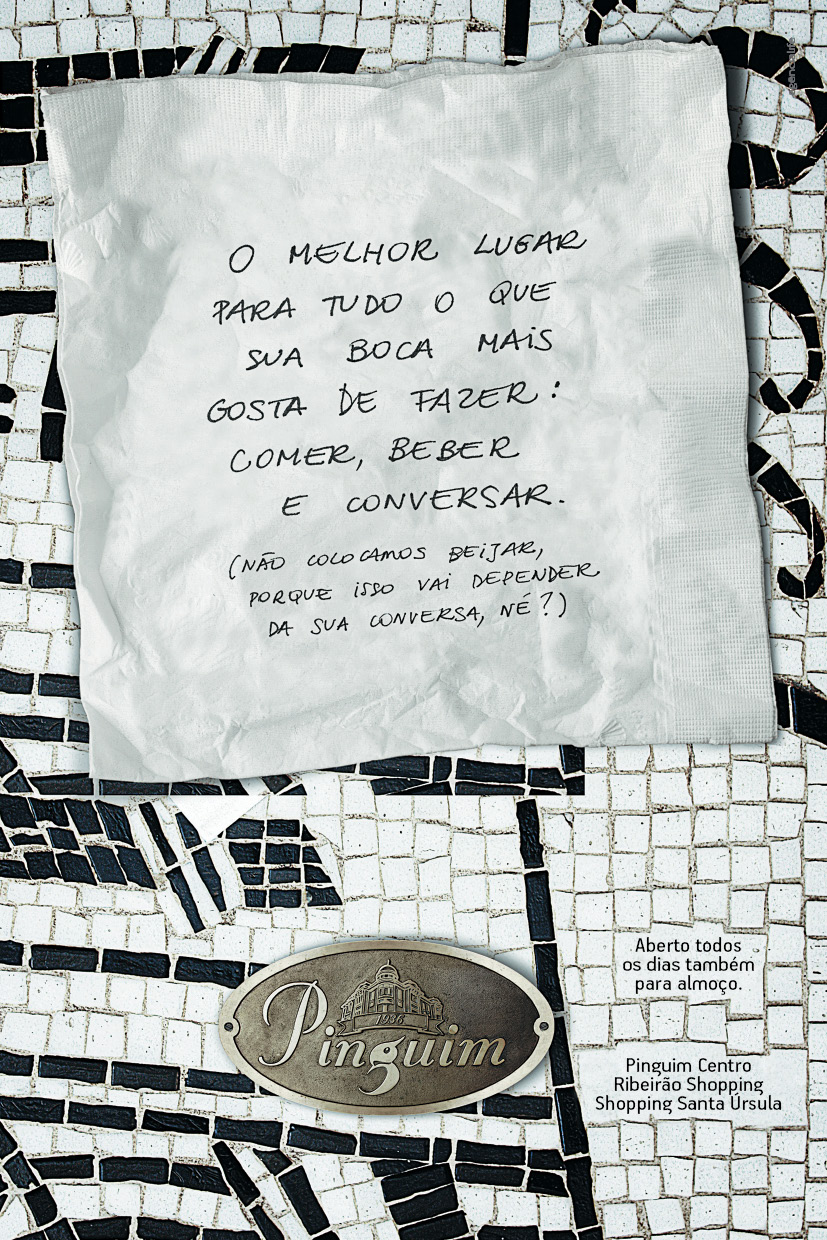 O MELHOR LUGAR
PARA TUDO O QUE
SUA BOCA MAIS
GOSTA DE FAZER:
COMER, BEBER
E CONVERSAR.
(NÃO COLOCAMOS BEIJAR,
PORQUE ISSO VAI DEPENDER
DA SUA CONVERSA, NÉ?)
1936
Pinguim
Aberto todos
os dias também
para almoço.
Pinguim Centro
Ribeirão Shopping
Shopping Santa Úrsula